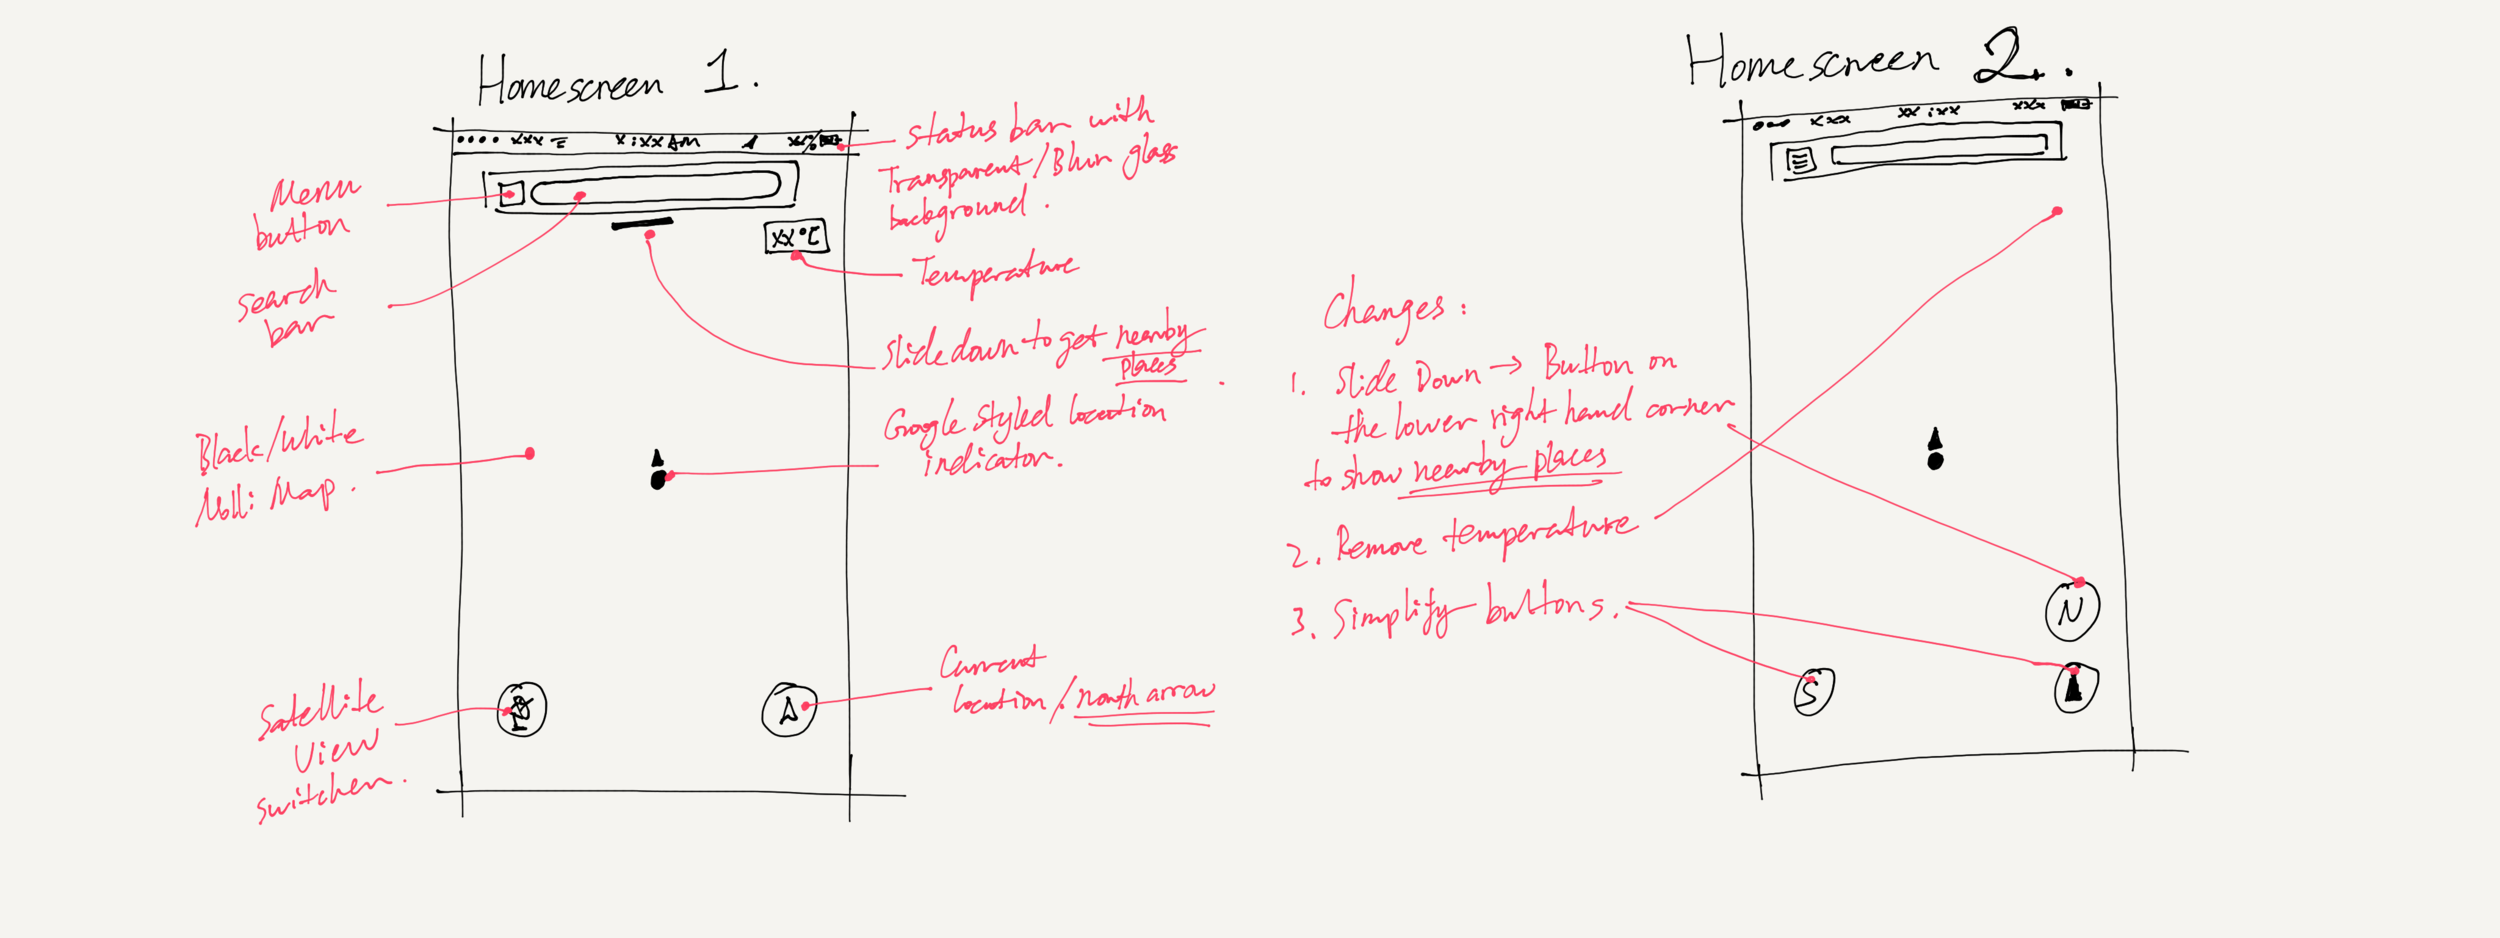 Homescreen 1.
xxx
x:xx AM
xx%
xx°C
Menu
button
Search
bar
Black/White
Nolli Map.
Satellite
View
switcher.
Status bar with
Transparent/Blur glass
background.
Temperature
Slide down to get nearby
places.
Google styled location
indicator.
Current
location/north arrow
Homescreen 2.
xxx
xx:xx
xxx
Changes:
1. Slide Down → Button on
the lower right hand corner
to show nearby places
2. Remove temperature
3. Simplify buttons.
N
S